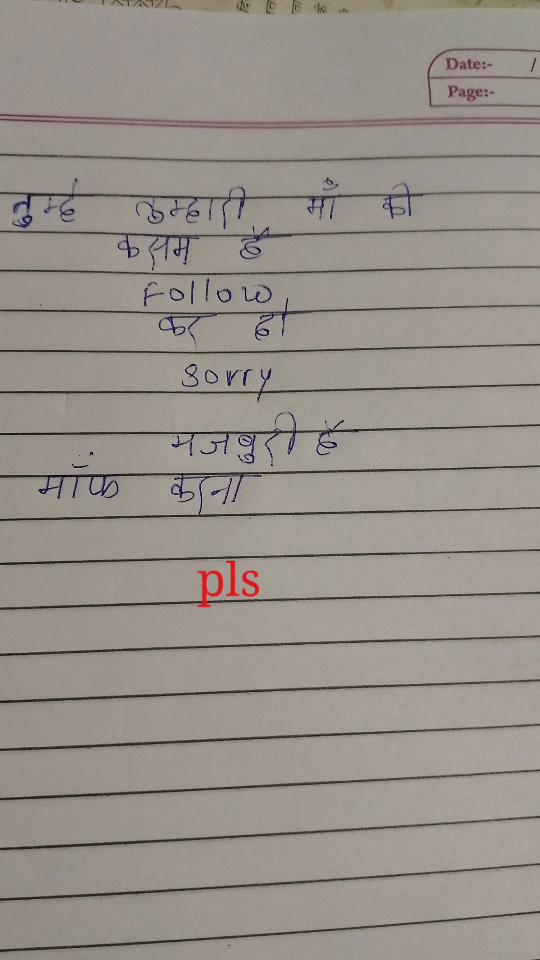 Date:- /
Page:-
तुम्हे तुम्हारी माँ की
कसम है
Follow
कर दो
Sorry
मजबुरी है
माँफ करना
pls